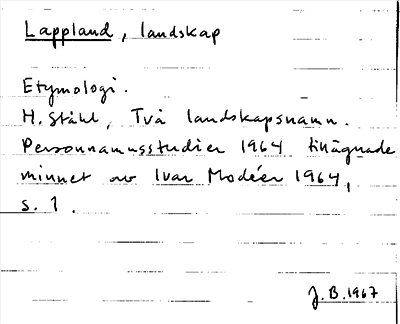 Lappland, landskap
Etymologi.
H. Ståhl, Två landskapsnamn.
Personnamnsstudier 1964 tillägnade
minnet av Ivar Modéer 1964,
s. 1.
J.B. 1967